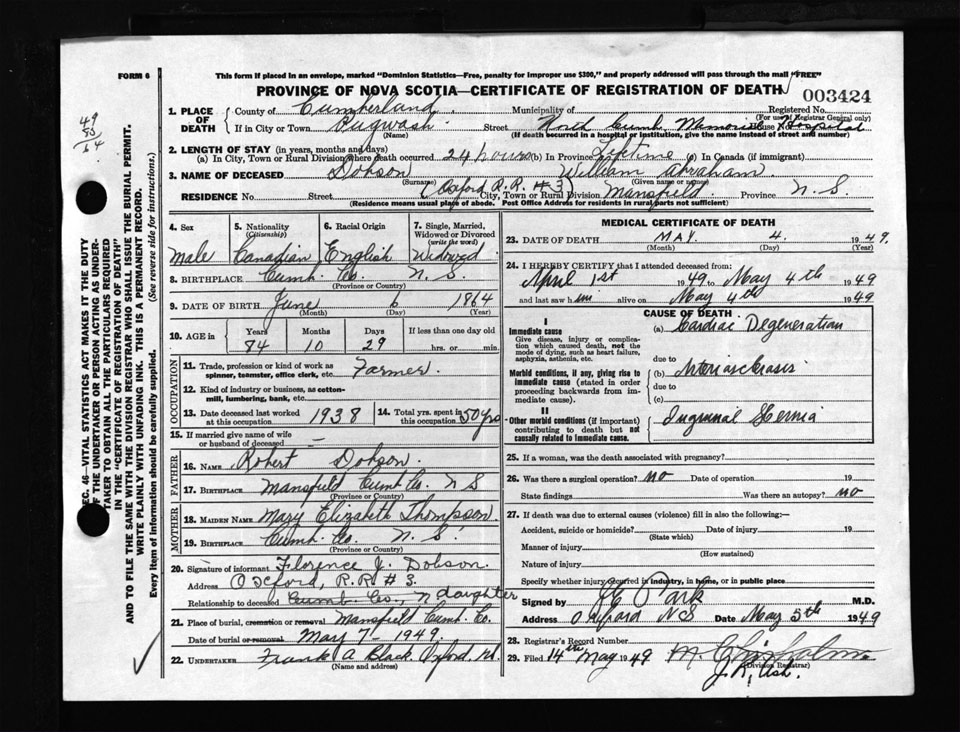 FORM 6
This form if placed in an envelope, marked "Dominion Statistics—Free, penalty for improper use $300," and properly addressed will pass through the mail "FREE"
PROVINCE OF NOVA SCOTIA—CERTIFICATE OF REGISTRATION OF DEATH
003424
49
50
64
1. PLACE OF DEATH
County of Cumberland Municipality of Registered No.
(For use of Registrar General only)
If in City or Town Pugwash Street North Cumb. Memorial Hospital
(Name) (If death occurred in a hospital or institution, give the name instead of street and number)
2. LENGTH OF STAY (in years, months and days)
(a) In City, Town or Rural Division where death occurred 24 hours (b) In Province Lifetime (c) In Canada (if immigrant)
3. NAME OF DECEASED Dobson William Abraham
(Surname) (Given name or names)
RESIDENCE No. Street (Oxford R.R. #3) City, Town or Rural Division Mansfield Province N. S.
(Residence means usual place of abode. Post Office Address for residents in rural parts not sufficient)
4. Sex 5. Nationality (Citizenship) 6. Racial Origin 7. Single, Married, Widowed or Divorced (write the word)
Male Canadian English Widowed
8. BIRTHPLACE Cumb. Co. N. S.
(Province or Country)
9. DATE OF BIRTH June 6 1864
(Month) (Day) (Year)
10. AGE in Years Months Days If less than one day old
84 10 29 hrs. or min.
OCCUPATION
11. Trade, profession or kind of work as spinner, teamster, office clerk, etc. Farmer.
12. Kind of industry or business, as cotton-mill, lumbering, bank, etc.
13. Date deceased last worked at this occupation 1938
14. Total yrs. spent in this occupation 50 yrs
15. If married give name of wife or husband of deceased —
FATHER
16. NAME Robert Dobson.
17. BIRTHPLACE Mansfield Cumb Co. N S
(Province or Country)
MOTHER
18. MAIDEN NAME Mary Elizabeth Thompson.
19. BIRTHPLACE Cumb. Co. N. S.
(Province or Country)
20. Signature of informant Florence J. Dobson.
Address Oxford, R.R. #3.
Relationship to deceased Cumb. Co., N daughter
21. Place of burial, cremation or removal Mansfield Cumb. Co.
Date of burial or removal May 7 - 1949.
22. UNDERTAKER Frank A Black. Oxford, NS
(Name and address)
MEDICAL CERTIFICATE OF DEATH
23. DATE OF DEATH MAY. 4. 1949.
(Month) (Day) (Year)
24. I HEREBY CERTIFY that I attended deceased from:
April 1st 1949 to May 4th 1949
and last saw him alive on May 4th 1949
CAUSE OF DEATH
I
Immediate cause
Give disease, injury or complication which caused death, not the mode of dying, such as heart failure, asphyxia, asthenia, etc.
(a) Cardiac Degeneration
due to
Morbid conditions, if any, giving rise to immediate cause (stated in order proceeding backwards from immediate cause).
(b) Arteriosclerosis
due to
(c)
II
Other morbid conditions (if important) contributing to death but not causally related to immediate cause.
Inguinal Hernia
25. If a woman, was the death associated with pregnancy?
26. Was there a surgical operation? NO Date of operation 19
State findings Was there an autopsy? NO
27. If death was due to external causes (violence) fill in also the following:—
Accident, suicide or homicide? Date of injury 19
(State which)
Manner of injury
(How sustained)
Nature of injury
Specify whether injury occurred in industry, in home, or in public place
Signed by Park M.D.
Address Oxford NS Date May 5th 1949
28. Registrar's Record Number
29. Filed 14th May 1949 M Chisholm
(Division Registrar)
SEC. 46—VITAL STATISTICS ACT MAKES IT THE DUTY
OF THE UNDERTAKER OR PERSON ACTING AS UNDERTAKER TO OBTAIN ALL THE PARTICULARS REQUIRED
IN THE "CERTIFICATE OF REGISTRATION OF DEATH"
AND TO FILE THE SAME WITH THE DIVISION REGISTRAR WHO SHALL ISSUE THE BURIAL PERMIT.
WRITE PLAINLY WITH UNFADING INK. THIS IS A PERMANENT RECORD.
Every item of information should be carefully supplied. (See reverse side for instructions.)